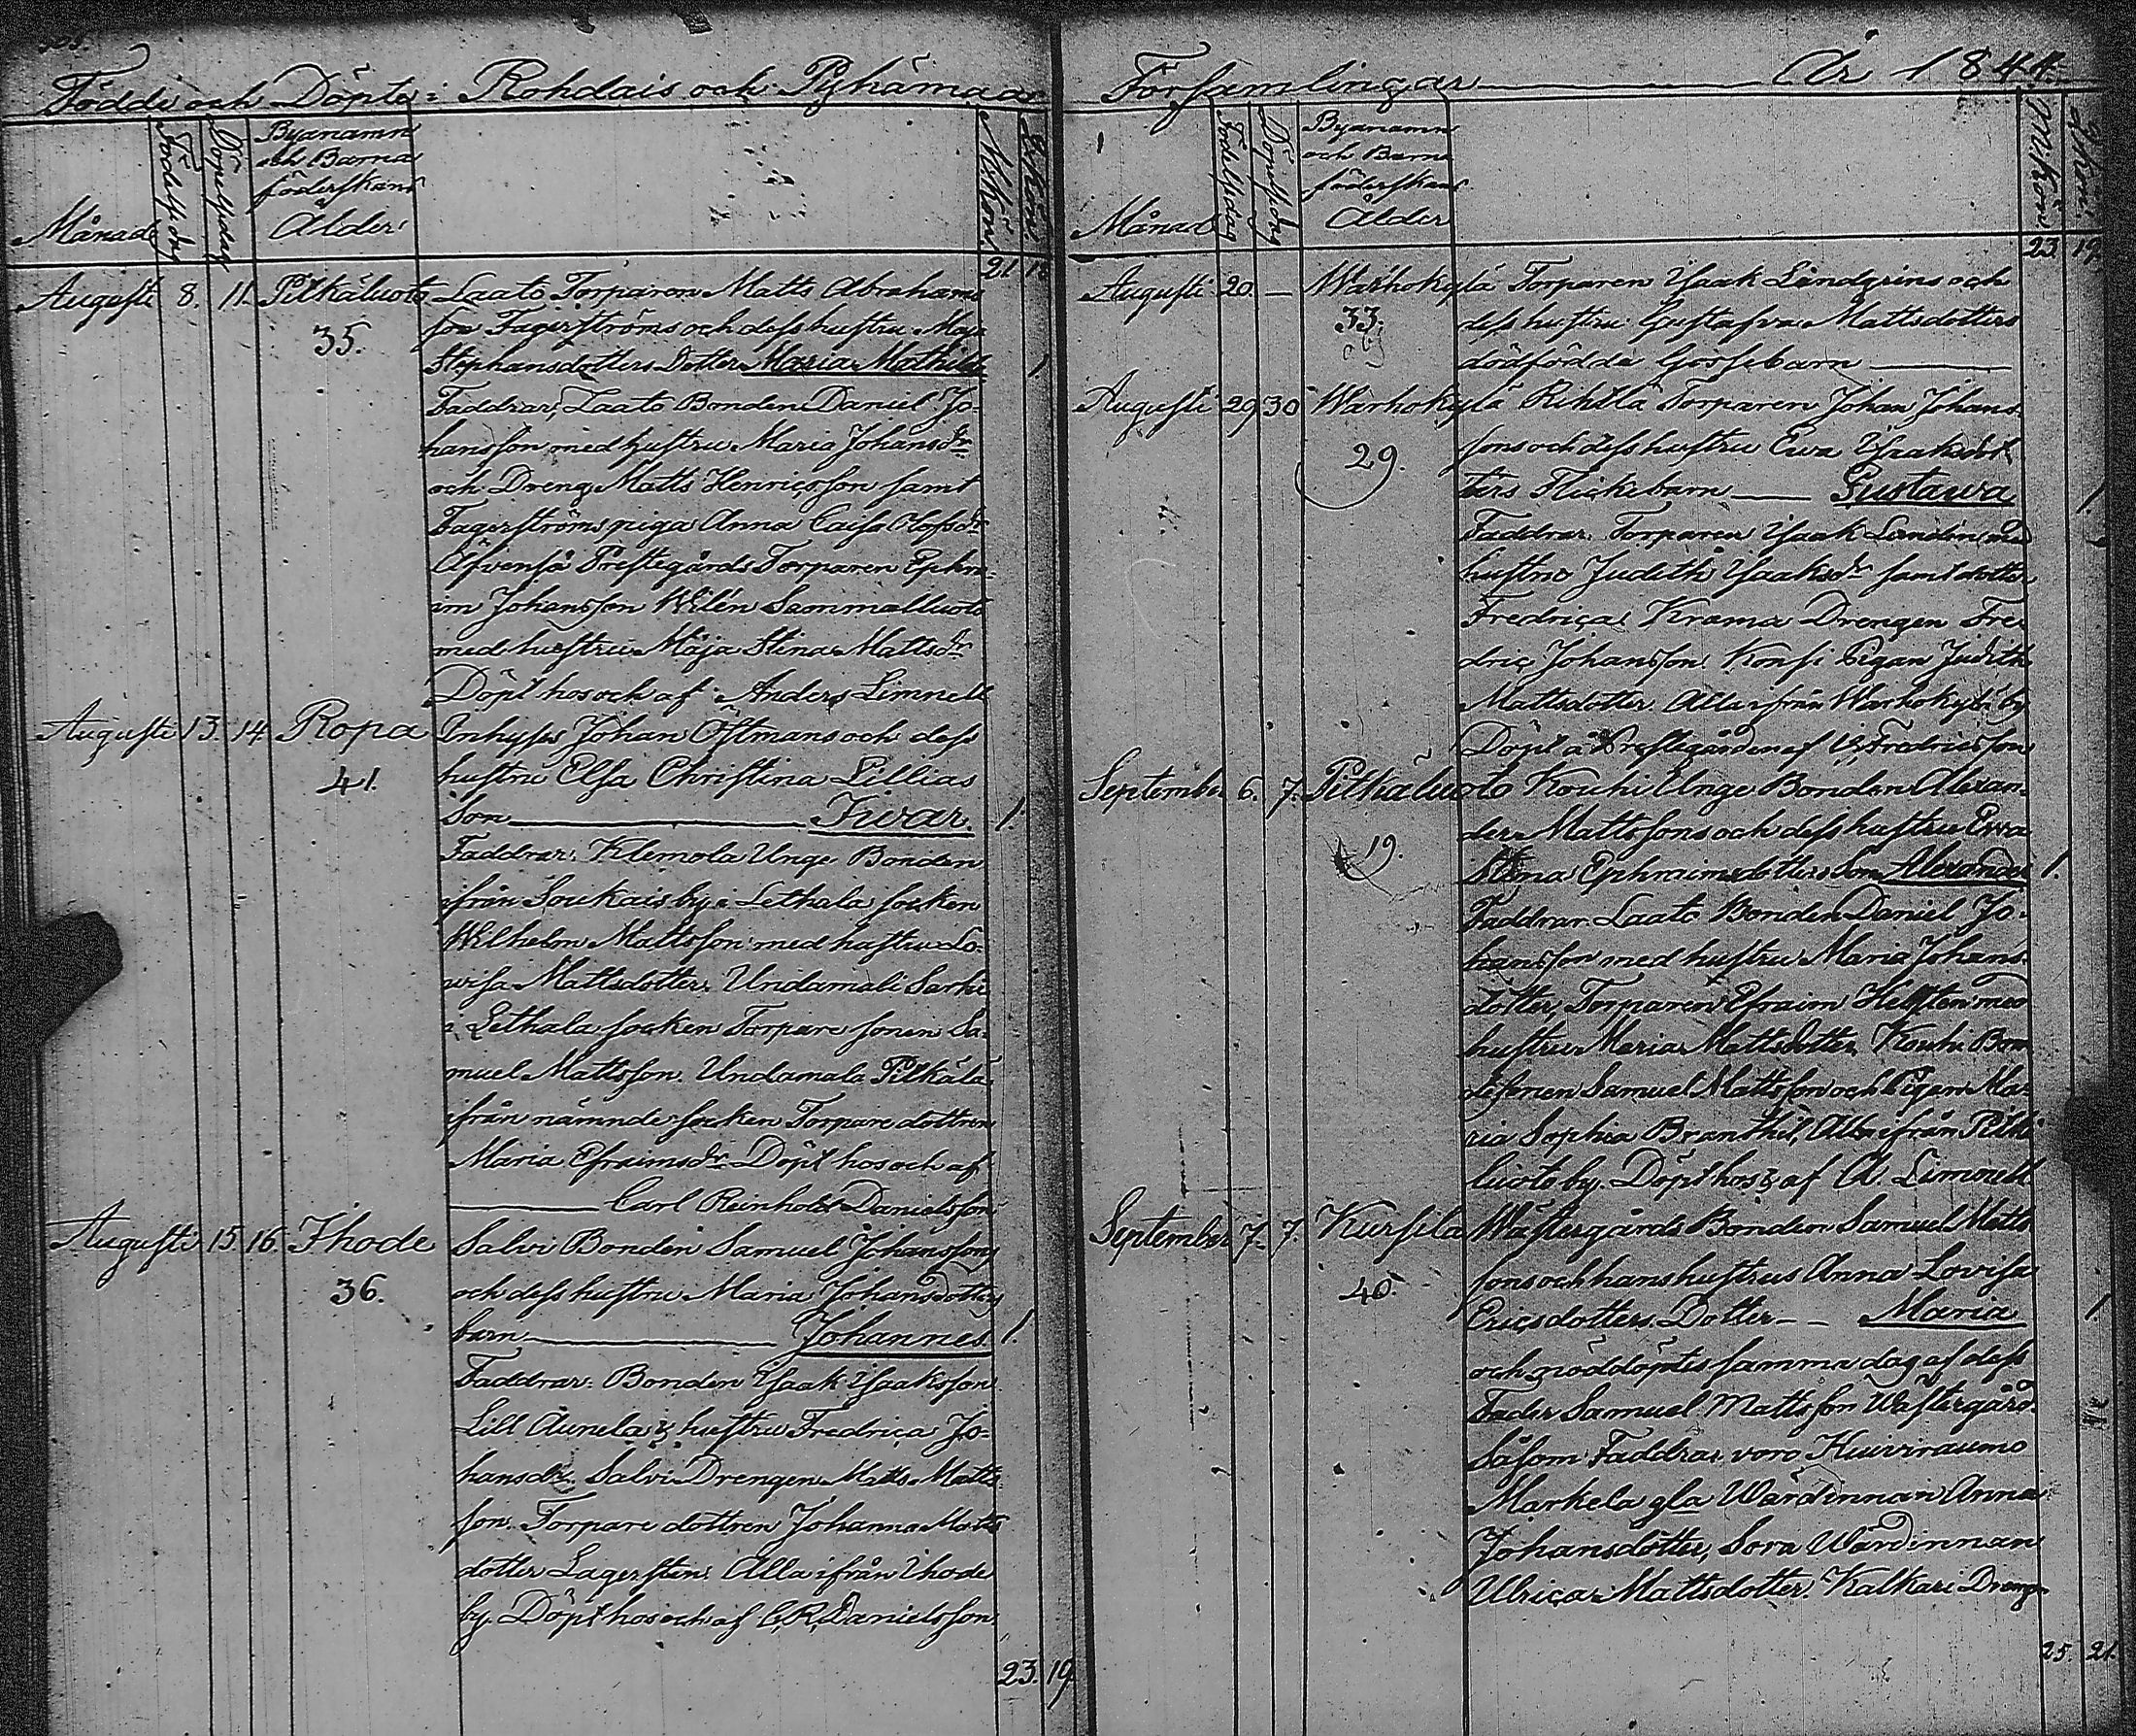 Födde och Döpte i Rohdais och Pyhämaa
Månad
Födelsedag
Döpelsedag
Byanamn
och Barna
föderskans
Ålder
Mkön
Qkön
21 18
Augusti 8. 11. Pitkäluoto Laato Torparen Matts Abrahams
35.
son Fagerströms och dess hustru Maja
Stephansdotters Dotter Maria Mathilda 1
Faddrar, Laato Bonden Daniel Jo-
hansson med hustru Maria Johansdr
och Dreng Matts Henricsson samt
Fagerströms piga Anna Caisa Olofsdr
Äfvenså Prestegårds Torparen Ephra-
im Johansson Wilén Sammalluoto
med hustru Maja Stina Mattsdr
Döpt hos och af Anders Limnell
Augusti 13. 14. Ropa Inhyses Johan Östmans och dess
41.
hustru Elsa Christina Lillias
Son Ivar. 1.
Faddrar: Klemola Unge Bonden
ifrån Soukais by i Lethala socken
Wilhelm Mattsson med hustru Lo-
visa Mattsdotter. Undamali Sarka
i Lethala socken Torpare sonen Sa-
muel Mattsson. Undamala Pitkälä
ifrån nämnde socken Torpare dottren
Maria Efraimsdr Döpt hos och af
Carl Reinhold Danielsson
Augusti 15. 16. Ihode Salvi Bonden Samuel Johanssons
36.
och dess hustru Maria Johansdotters
barn Johannes 1.
Faddrar: Bonden Isaak Isaksson
Lill Aunela & hustru Fredrica Jo-
hansdr. Salvi Drengen Matts Matts
son. Torpare dottren Johanna Matts
dotter Lagersten. Alla ifrån Ihode
by. Döpt hos och af C.R. Danielsson
23. 19.
Församlingar År 1844.
Månad
Födelsedag
Döpelsedag
Byanamn
och Barna
föderskans
Ålder
Mkön
Qkön
23. 19.
Augusti 20. — Warhokylä Torparen Isaak Lindgrens och
33.
dess hustru Gustafva Mattsdotters
dödfödde Gossebarn
Augusti 29 30 Warhokylä Rihtlä Torparen Johan Johans-
29.
sons och dess hustru Ewa Isaaksdot
ters Flickebarn — Gustawa 1.
Faddrar. Torparen Isaak Lindin med
hustru Judith Isaaksdr samt dotter
Fredrica Krama Drengen Fre-
dric Johansson Konsi Pigan Judith
Mattsdotter. Alla ifrån Warhokylä by
Döpt å Prestegården af Fredricsson
September 6. 7. Pitkäluoto Kouhi Unge Bonden Alexan-
19.
der Mattssons och dess hustru Ewa
Stina Ephraimsdotters Son Alexander 1.
Faddrar. Laato Bonden Daniel Jo-
hansson med hustru Maria Johans
dotter, Torparen Efraim Helsten med
hustru Maria Mattsdotter. Kouhi Bon
desonen Samuel Mattsson och Pigan Ma-
ria Sophia Alla ifrån Pitkä
luoto by. Döpt hos & af A. Limnell
September 7. 7. Kursila Wästergårds Bonden Samuel Matts
40.
sons och hans hustrus Anna Lovisa
Ericsdotters Dotter — Maria 1.
och nöddöptes samma dag af dess
Fader Samuel Mattsson Wästergård.
Såsom Faddrar voro Kuivirauma
Markela gla Wärdinnan Anna
Johansdotter, Sora Wärdinnan
Ulrica Mattsdotter. Kalkari Dreng
25. 21.